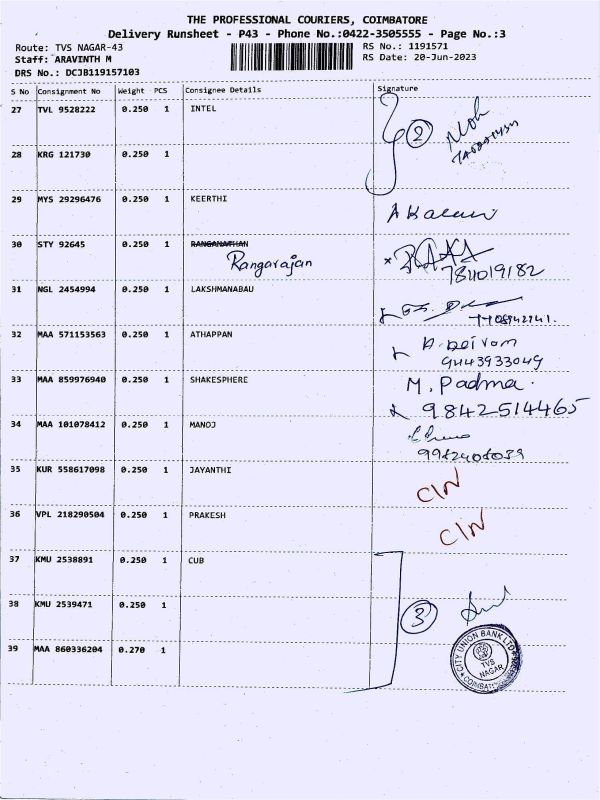 THE PROFESSIONAL COURIERS, COIMBATORE
Delivery Runsheet - P43 - Phone No.:0422-3505555 - Page No.:3
Route: TVS NAGAR-43 RS No.: 1191571
Staff: ARAVINTH M RS Date: 20-Jun-2023
DRS No.: DCJB119157103
S No Consignment No Weight PCS Consignee Details Signature
27 TVL 9528222 0.250 1 INTEL
2
28 KRG 121730 0.250 1
29 MYS 29296476 0.250 1 KEERTHI
30 STY 92645 0.250 1 RANGANATHAN
Rangarajan
784019182
31 NGL 2454994 0.250 1 LAKSHMANABAU
32 MAA 571153563 0.250 1 ATHAPPAN
9443933049
33 MAA 859976940 0.250 1 SHAKESPHERE M. Padma.
9842514465
34 MAA 101078412 0.250 1 MANOJ
35 KUR 558617098 0.250 1 JAYANTHI C/N
36 VPL 218290504 0.250 1 PRAKESH C/N
37 KMU 2538891 0.250 1 CUB
38 KMU 2539471 0.250 1 3
39 MAA 860336204 0.270 1
CITY UNION BANK LTD
TVS
NAGAR